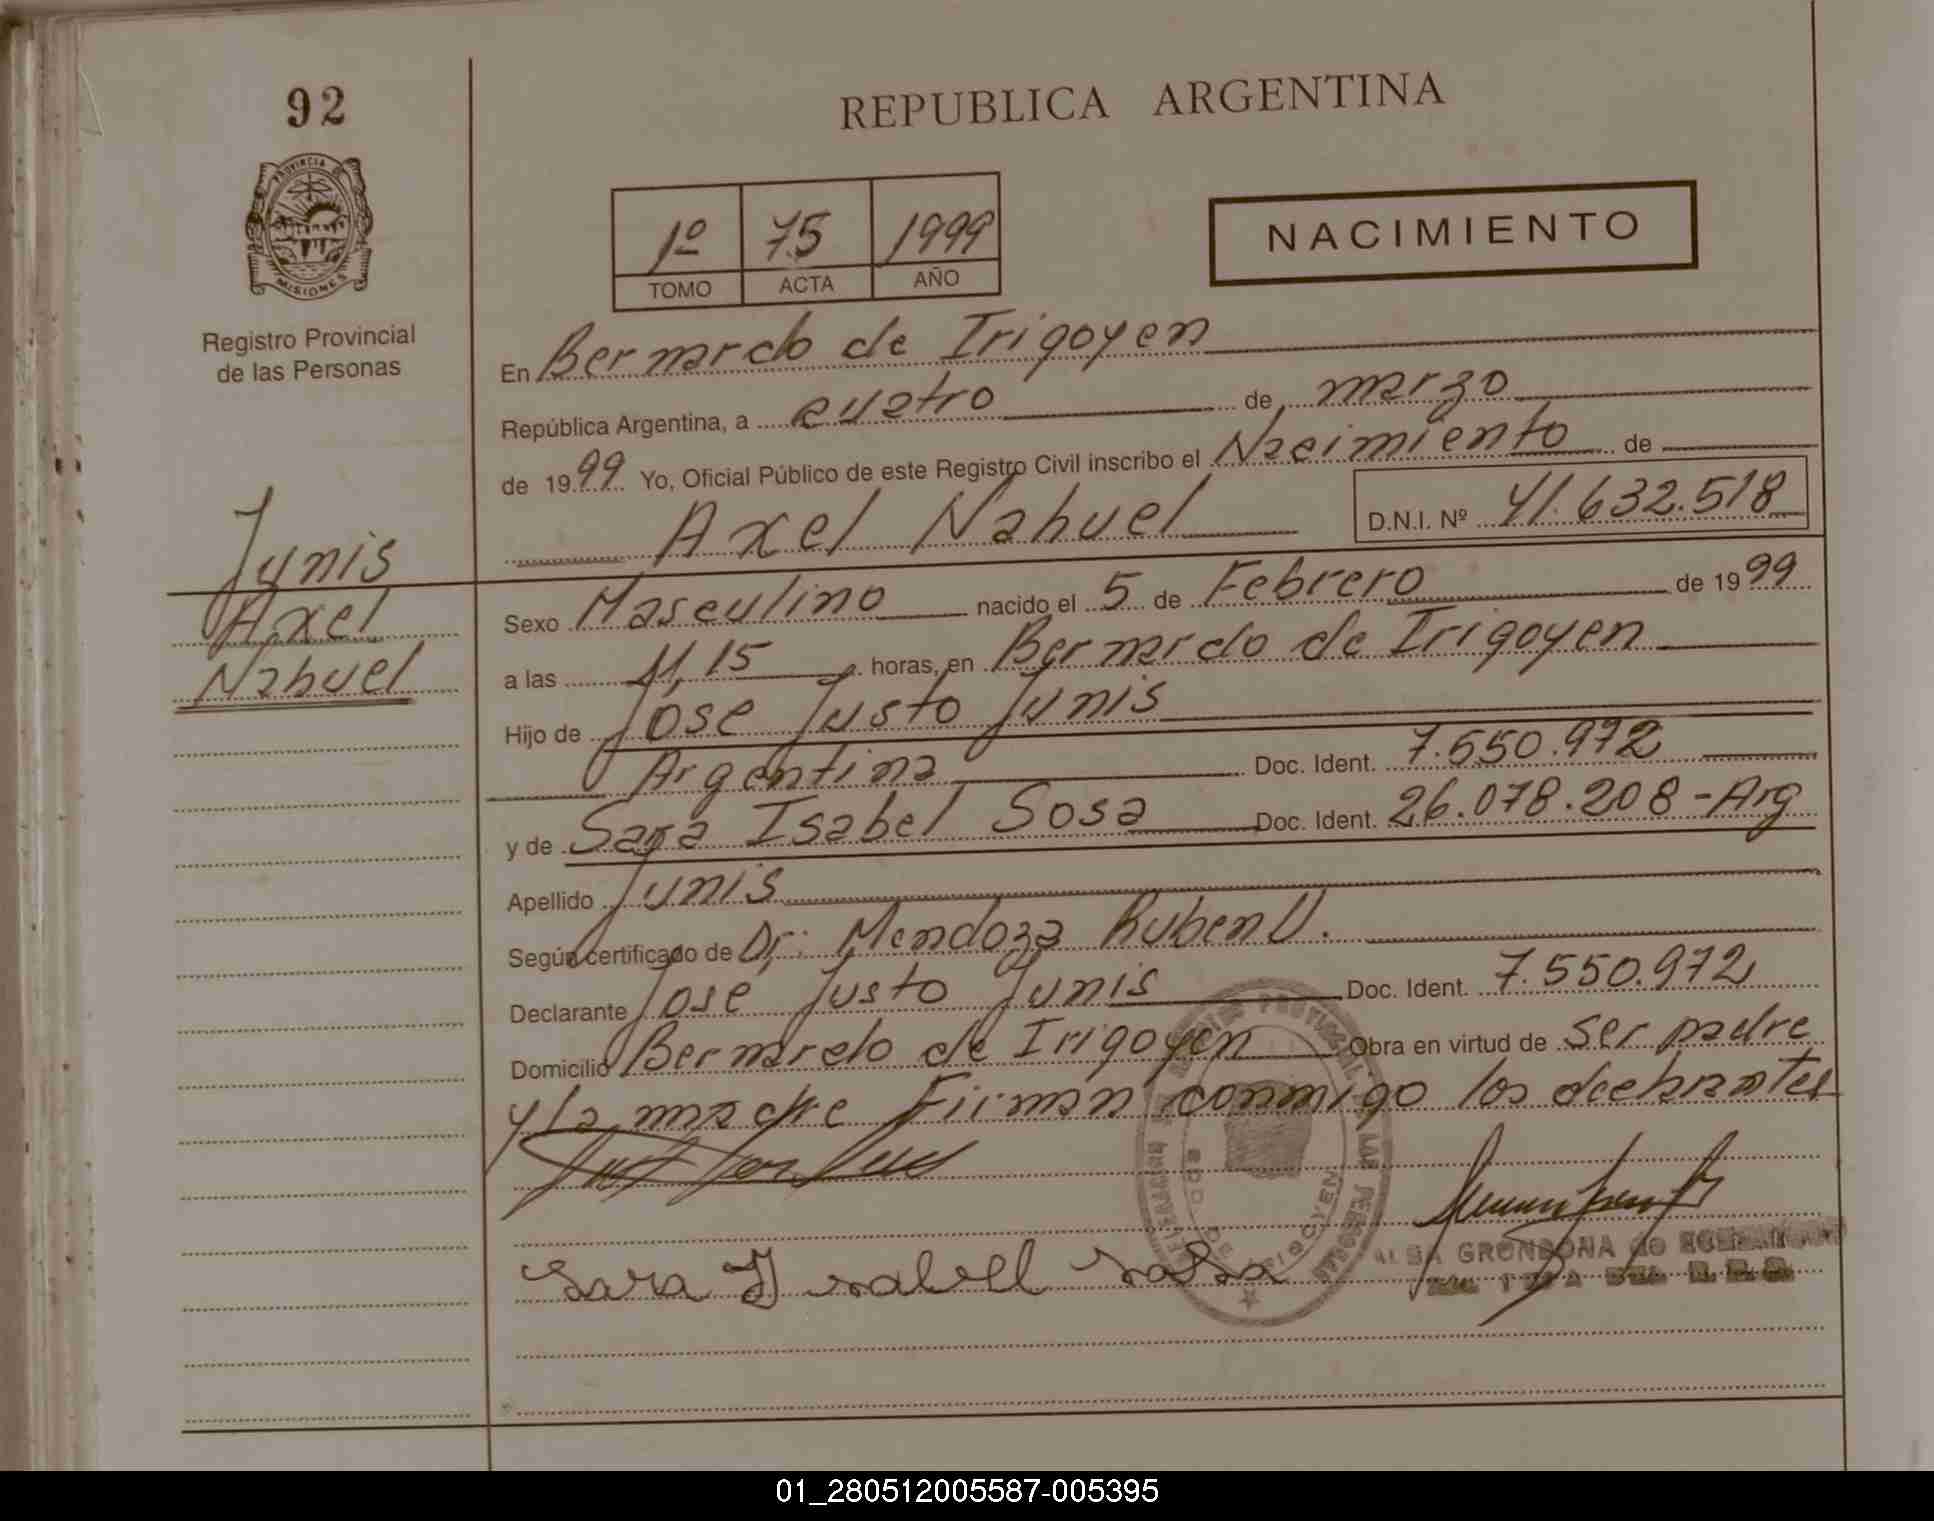 92
REPUBLICA ARGENTINA
PROVINCIA
MISIONES
Registro Provincial
de las Personas
1º 75 1999
TOMO ACTA AÑO
NACIMIENTO
En Bernardo de Irigoyen
República Argentina, a cuatro de marzo
de 1999 Yo, Oficial Público de este Registro Civil inscribo el Nacimiento de
Axel Nahuel D.N.I. Nº 41.632.518
Junis
Axel
Nahuel
Sexo Masculino nacido el 5 de Febrero de 1999
a las 11,15 horas, en Bernardo de Irigoyen
Hijo de Jose Justo Junis
Argentina Doc. Ident. 7.550.972
y de Sara Isabel Sosa Doc. Ident. 26.078.208-Arg
Apellido Junis
Según certificado de Dr: Mendoza Ruben U.
Declarante Jose Justo Junis Doc. Ident. 7.550.972
Domicilio Bernardo de Irigoyen Obra en virtud de ser padre
y la madre Firman conmigo los declarantes
Sara Isabell Sosa
GRONDONA de
01_280512005587-005395